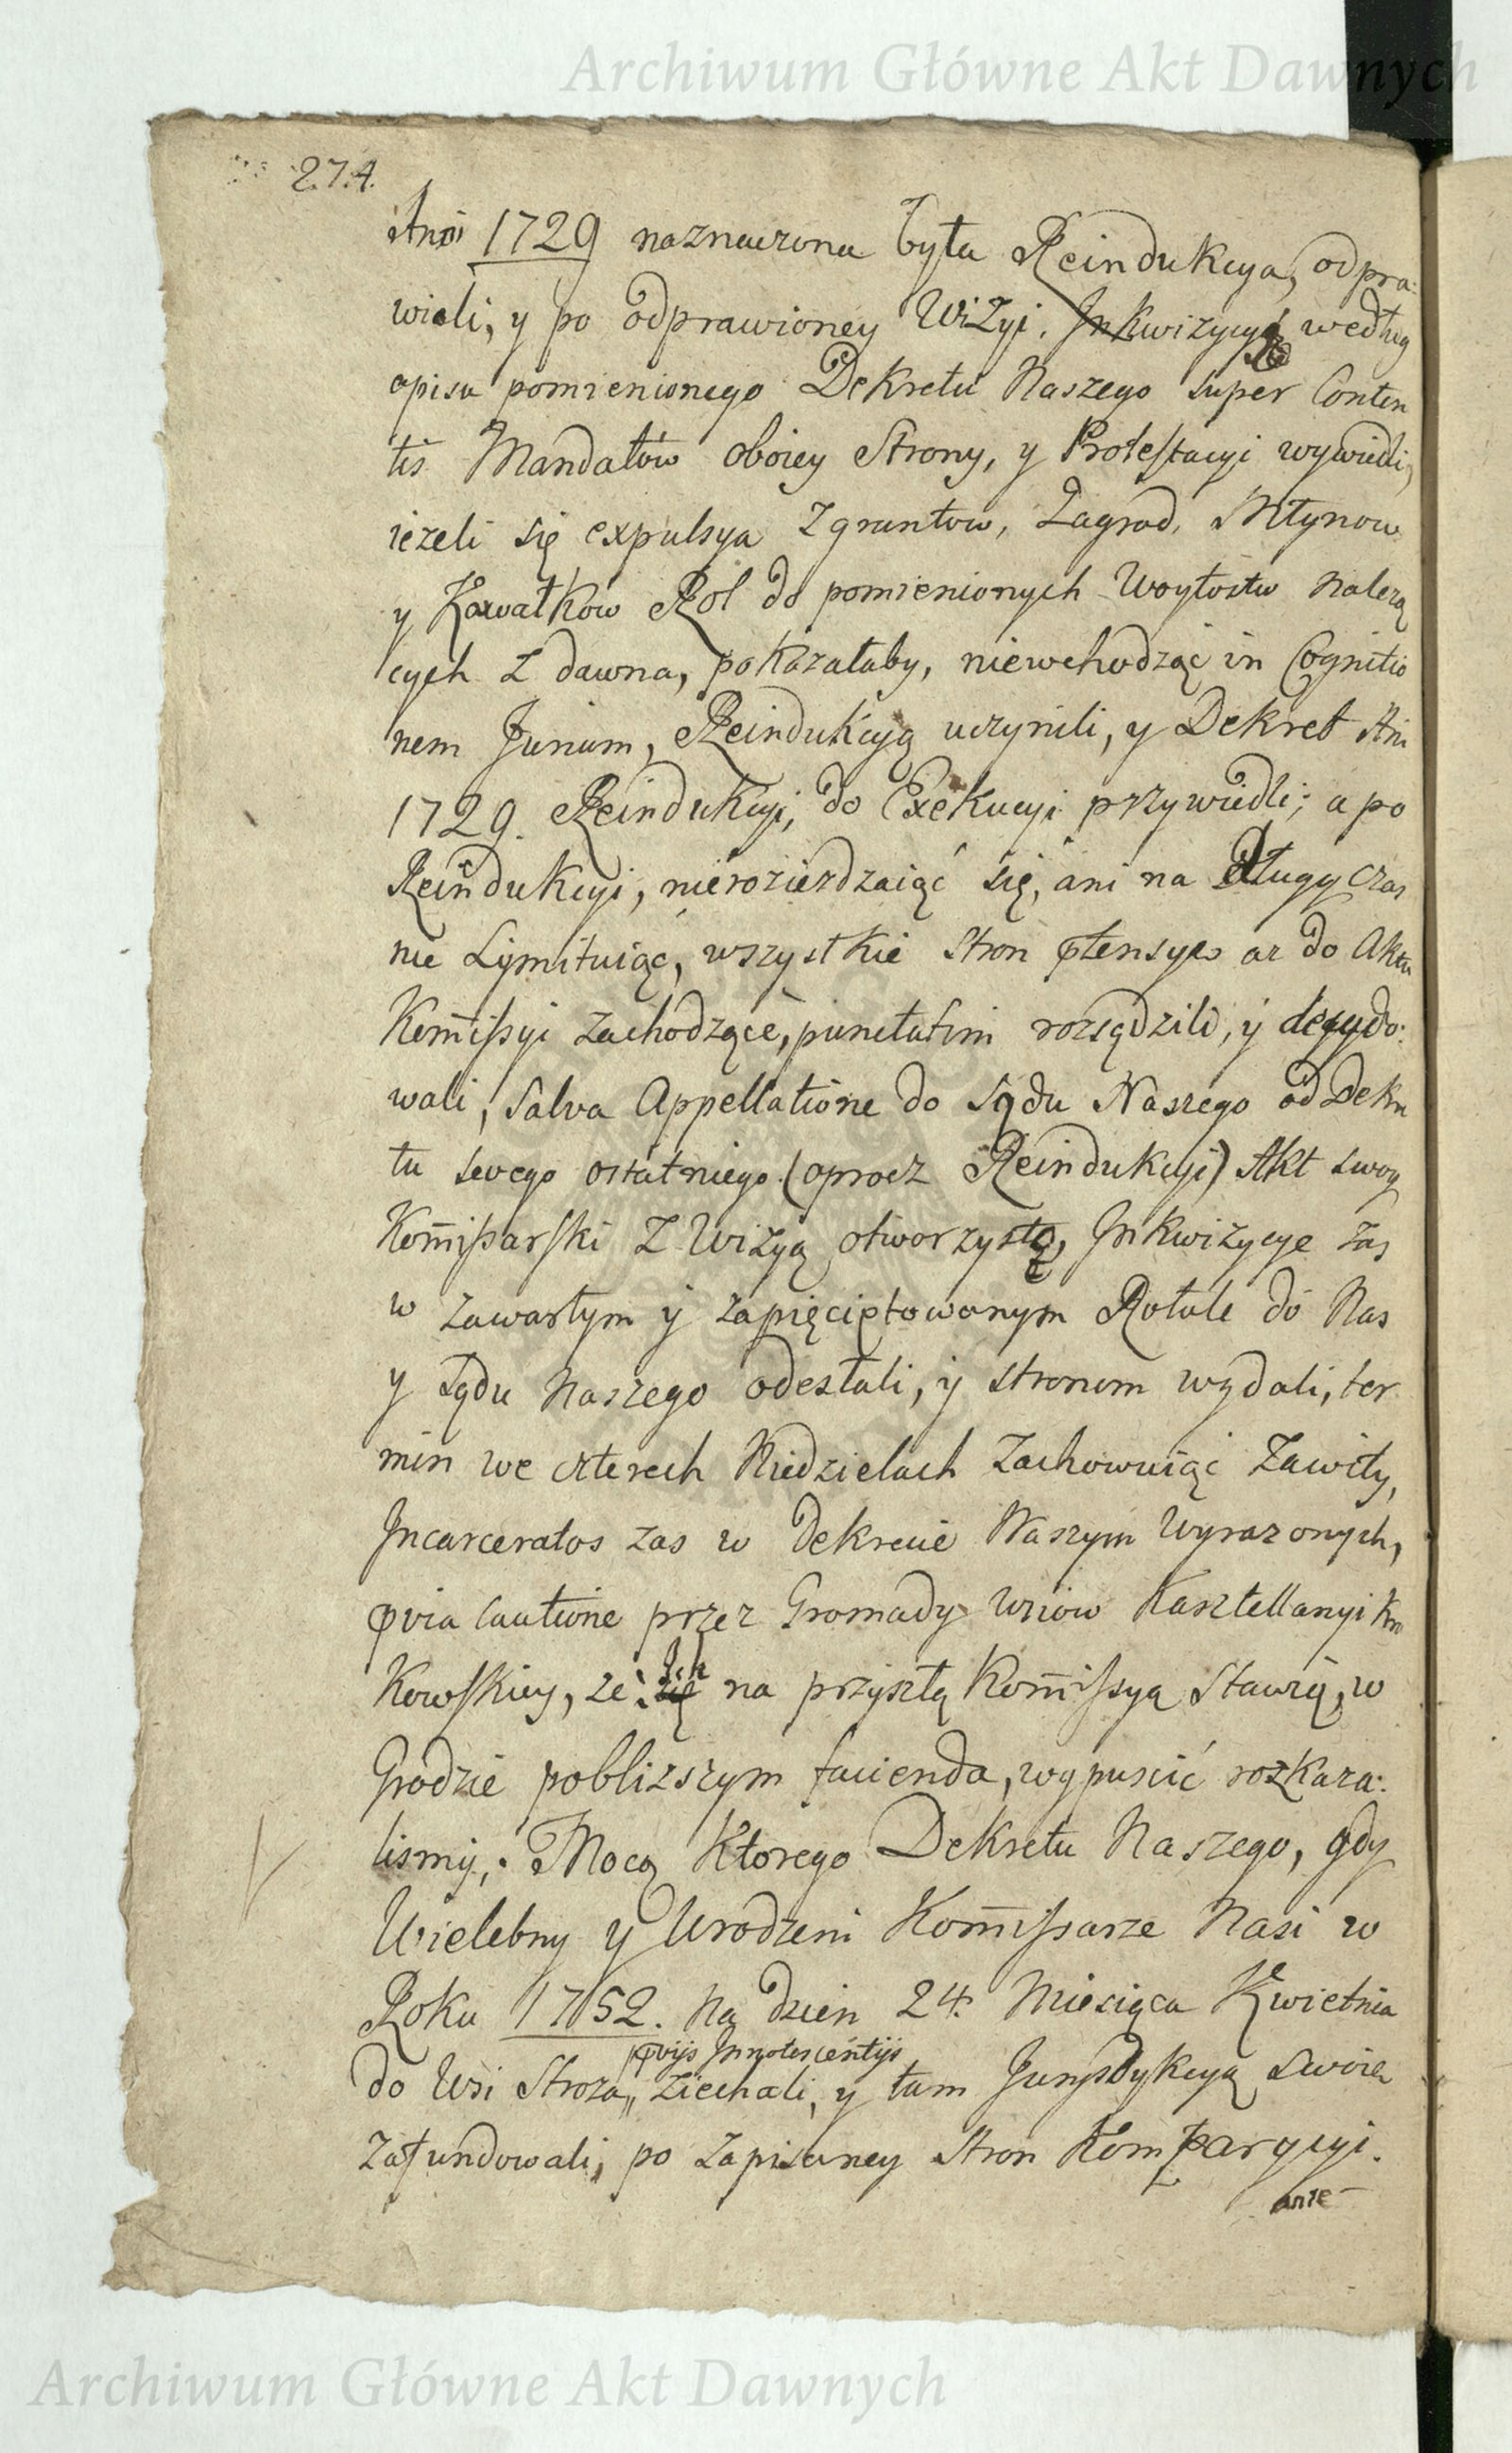 Archiwum Główne Akt Dawnych
274.
Anni 1729 naznaczona była Reindukcya, odpra:
wieli, y po odprawioney Wizyi, Inkwizycye według
opisu pomienionego Dekretu Naszego super Conten
tis Mandatów oboiey Strony, y Protestacyi wywiedli,
ieżeli się expulsya z gruntow, Zagrod, Młynow
y Kawałkow Rol do pomienionych Woytostw należą
cych z dawna, pokazałaby, niewchodząc in Cognitio
nem Jurium, Reindukcyą uczynili, y Dekret Ani
1729. Reindukcyi, do Exekucyi przywiedli; a po
Reindukcyi, nierozieżdzaiąc się, ani na długy czas
nie Lymituiąc, wszystkie stron ptensye aż do Aktu
Komissyi zachodzące, punctatim rozsądzili, y decydo:
wali, Salva Appellatione do sądu Naszego od Dekre
tu swego ostatniego (oprocz Reindukcyi) Akt swoy
Komissarski z Wizyą otworzystą, Inkwizycye zas
w zawartym y zapięciętowanym Rotule do Nas
y sądu Naszego odesłali, y stronom wydali, ter
min we czterech Niedzielach zachowuiąc zawity,
Incarceratos zas w Dekrecie Naszym wyrazonych,
pvia cautione przez Gromady Wsiow Kasztellanyi Kra
kowskiey, że Ich na przyszłą Komissyą stawią, w
Grodzie poblizszym facienda, wypuscić rozkaza:
lismy, Mocą ktorego Dekretu Naszego, gdy
Wielebny y Urodzeni Komissarze Nasi w
Roku 1752. Na dzien 24. Miesiąca Kwietnia
pvijs Innotescentijs
do Wsi Stroza, ziechali, y tam Jurysdykcyą swoię
zafundowali, po zapisaney stron Komparycyi.
anie
Archiwum Główne Akt Dawnych